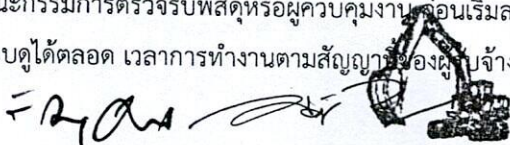 นะกรรมการตรวจรับพัสดุหรือผู้ควบคุมงาน ก่อนเริ่มล
บดูได้ตลอด เวลาการทำงานตามสัญญาของผู้รับจ้าง